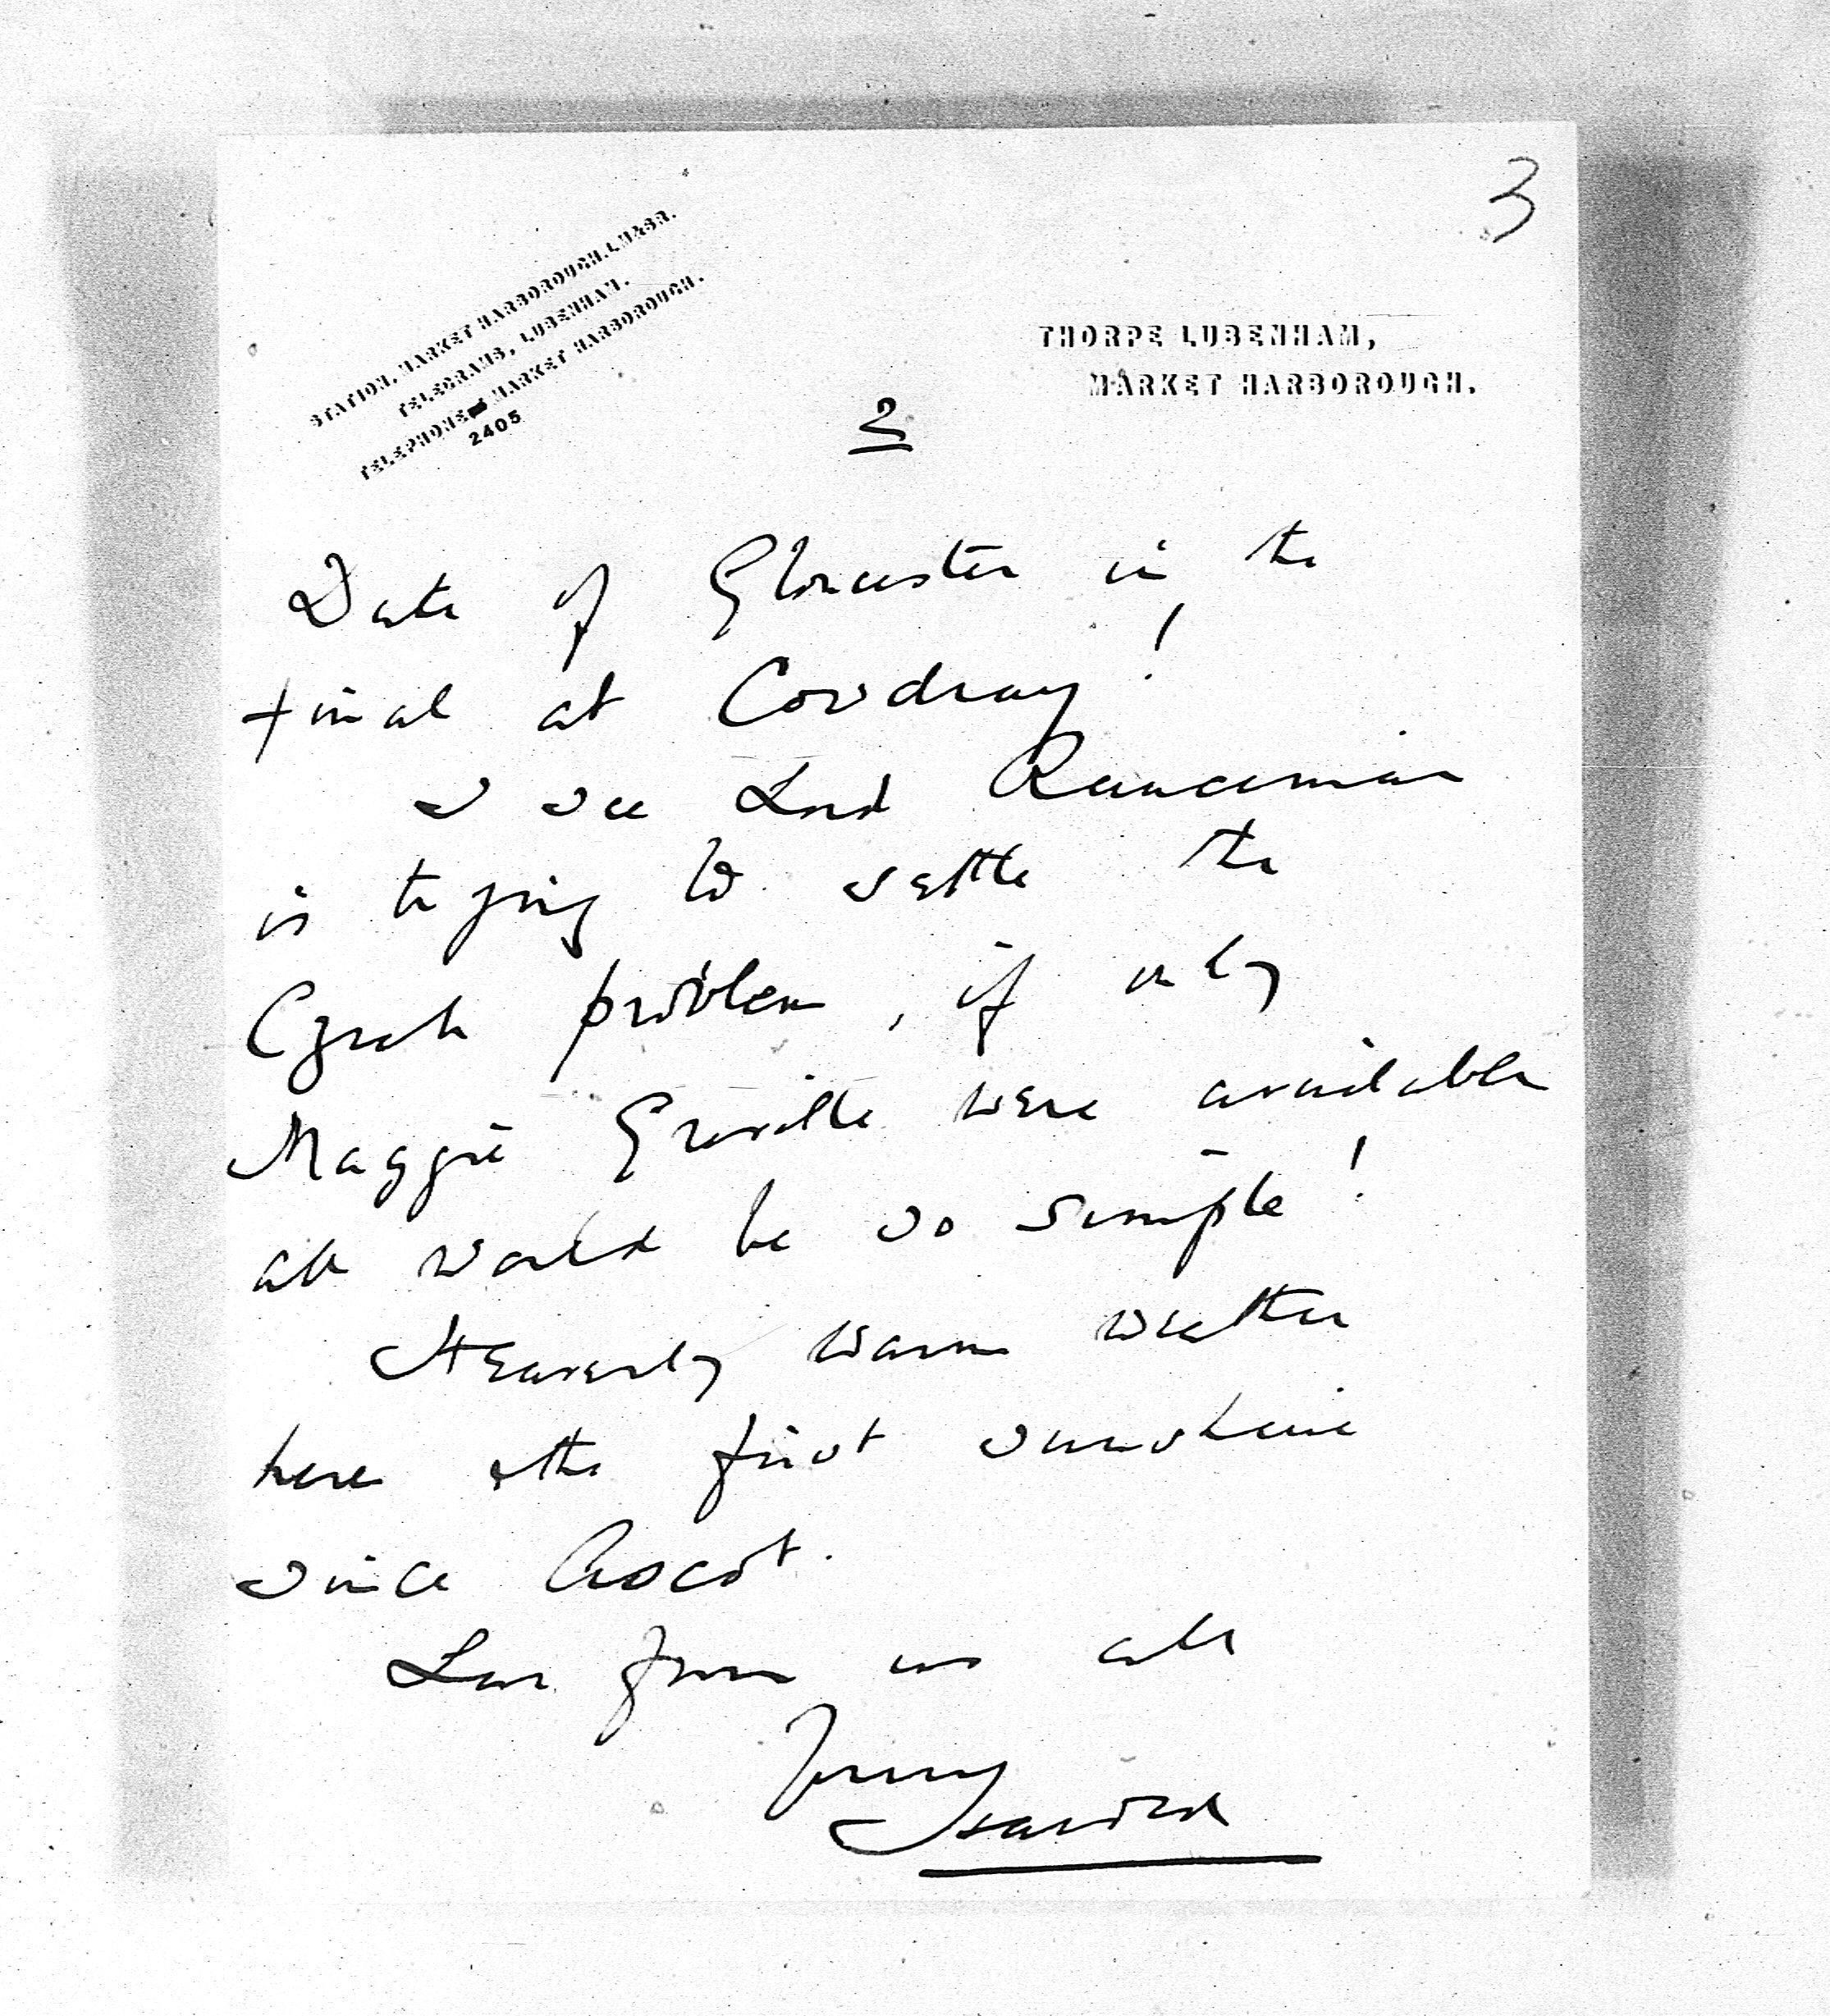 3
STATION, MARKET HARBOROUGH. L.M.&S.R.
TELEGRAMS, LUBENHAM.
TELEPHONE MARKET HARBOROUGH.
2405
THORPE LUBENHAM,
MARKET HARBOROUGH.
2
Duke of Gloucester in the
final at Cowdray!
I see Lord Runciman
is trying to settle the
Czech problem, if only
Maggie Greville were available
all would be so simple!
Heavenly warm weather
here & the first sunshine
since Ascot.
Love from us all